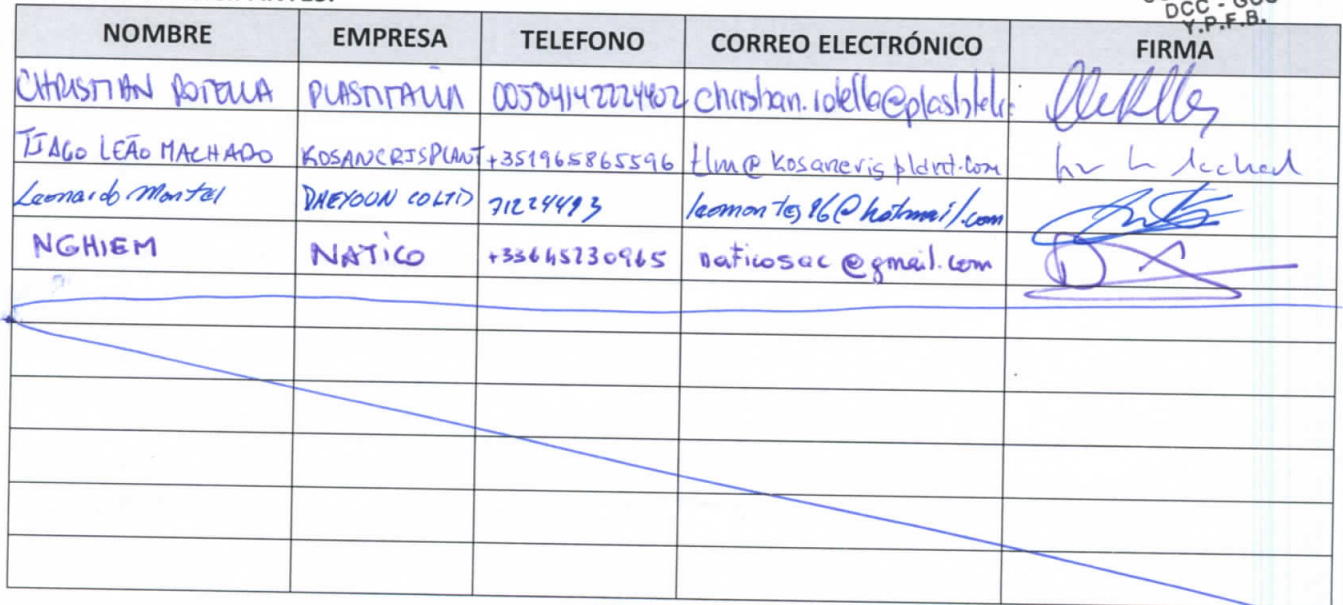 DCC - GCC
Y.P.F.B.
NOMBRE EMPRESA TELEFONO CORREO ELECTRÓNICO FIRMA
CHRISTIAN ROTELLA PLASTITALIA 00584142224402
TIAGO LEÃO MACHADO KOSANCRISPLANT +351965865596 tlm@kosancrisplant.com
Leonardo Montes DAEYOUN CO LTD 71224493 leomontes86@hotmail.com
NGHIEM NATICO +33645230965 naticosac@gmail.com